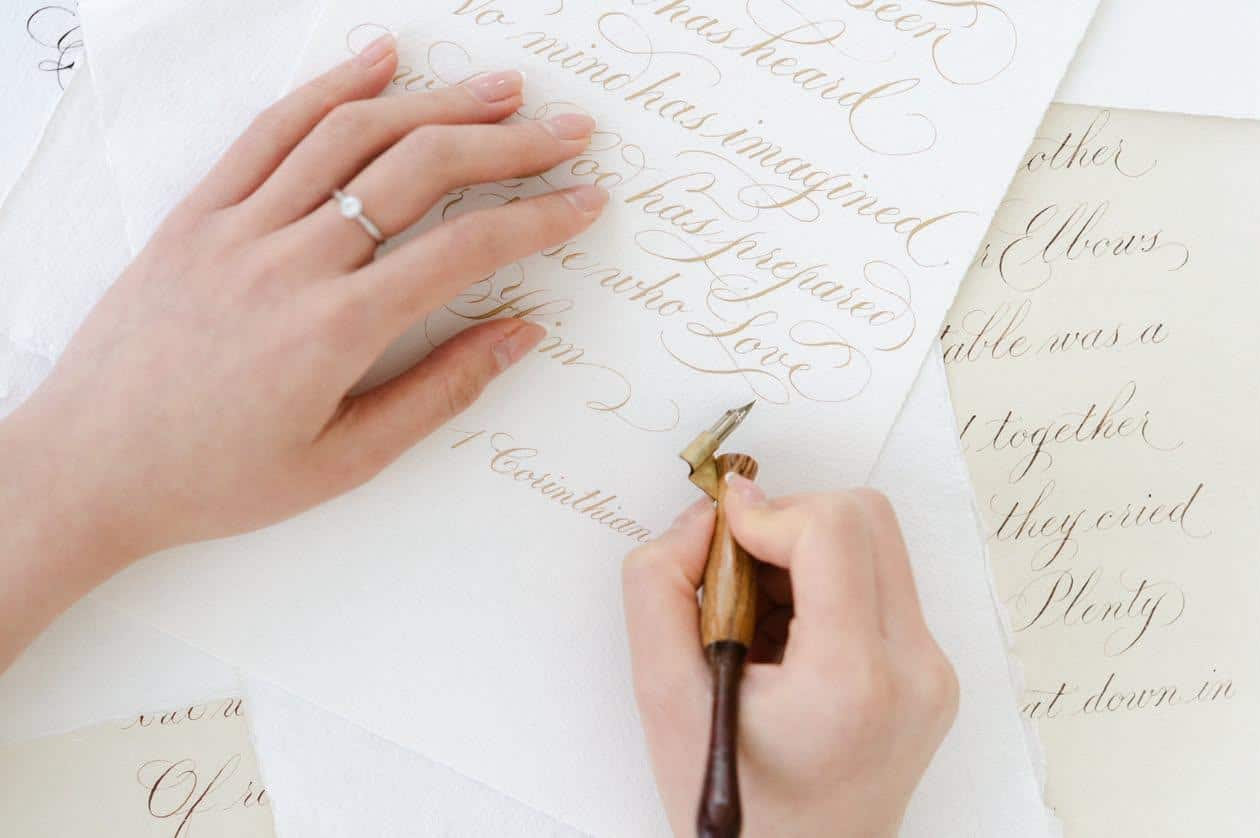 seen
has heard
No mind has imagined
has prepared
who Love
Him
1 Corinthian
other
Elbows
table was a
together
they cried
Plenty
at down in
Of